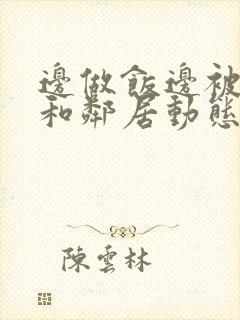 邊做飯邊被
和鄰居動態
陳雲林